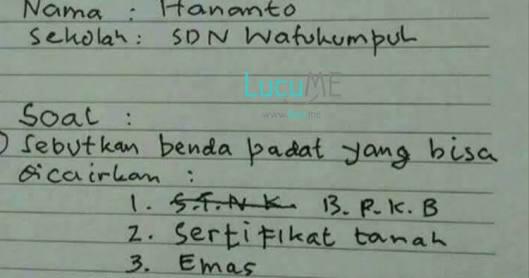 Nama : Hananto
Sekolah : SDN Watukumpul
LucuME
www.lucu.me
Soal :
Sebutkan benda padat yang bisa
dicairkan :
1. S.T.N.K. B.P.K.B
2. Sertifikat tanah
3. Emas